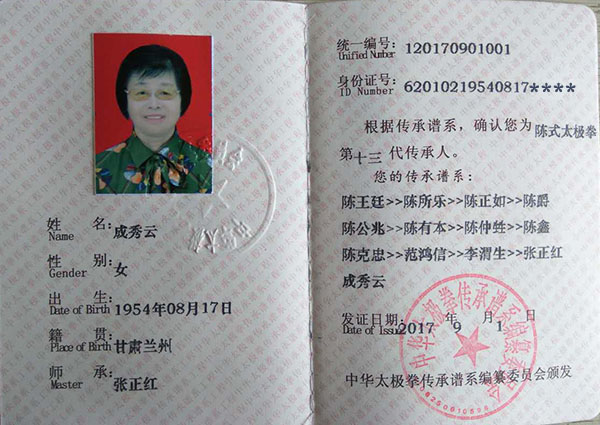 姓 名:
Name 成秀云
性 别:
Gender 女
出 生:
Date of Birth 1954年08月17日
籍 贯:
Place of Birth 甘肃兰州
师 承:
Master 张正红
统一编号:
Unified Number 120170901001
身份证号:
ID Number 62010219540817****
根据传承谱系,确认您为 陈式太极拳
第 十三 代传承人。
您的传承谱系:
陈王廷>>陈所乐>>陈正如>>陈爵
陈公兆>>陈有本>>陈仲甡>>陈鑫
陈克忠>>范鸿信>>李渭生>>张正红
成秀云
发证日期:
Date of Issue 2017 9月 1日
中华太极拳传承谱系编纂委员会
中华太极拳传承谱系编纂委员会颁发